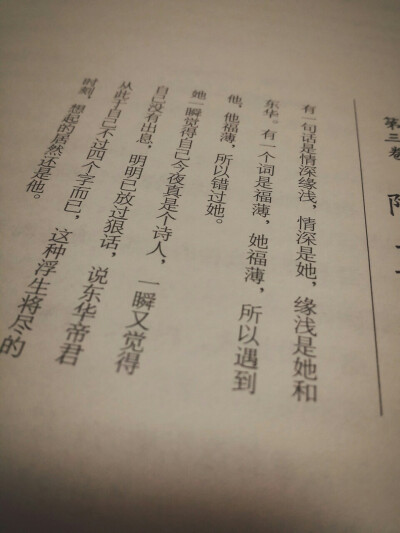 第三卷
有一句话是情深缘浅，情深是她，缘浅是她和
东华。有一个词是福薄，她福薄，所以遇到
他，他福薄，所以错过她。
她一瞬觉得自己今夜真是个诗人，一瞬又觉得
自己没有出息，明明已放过狠话，说东华帝君
从此于自己不过四个字而已，这种浮生将尽的
时刻，想起的居然还是他。